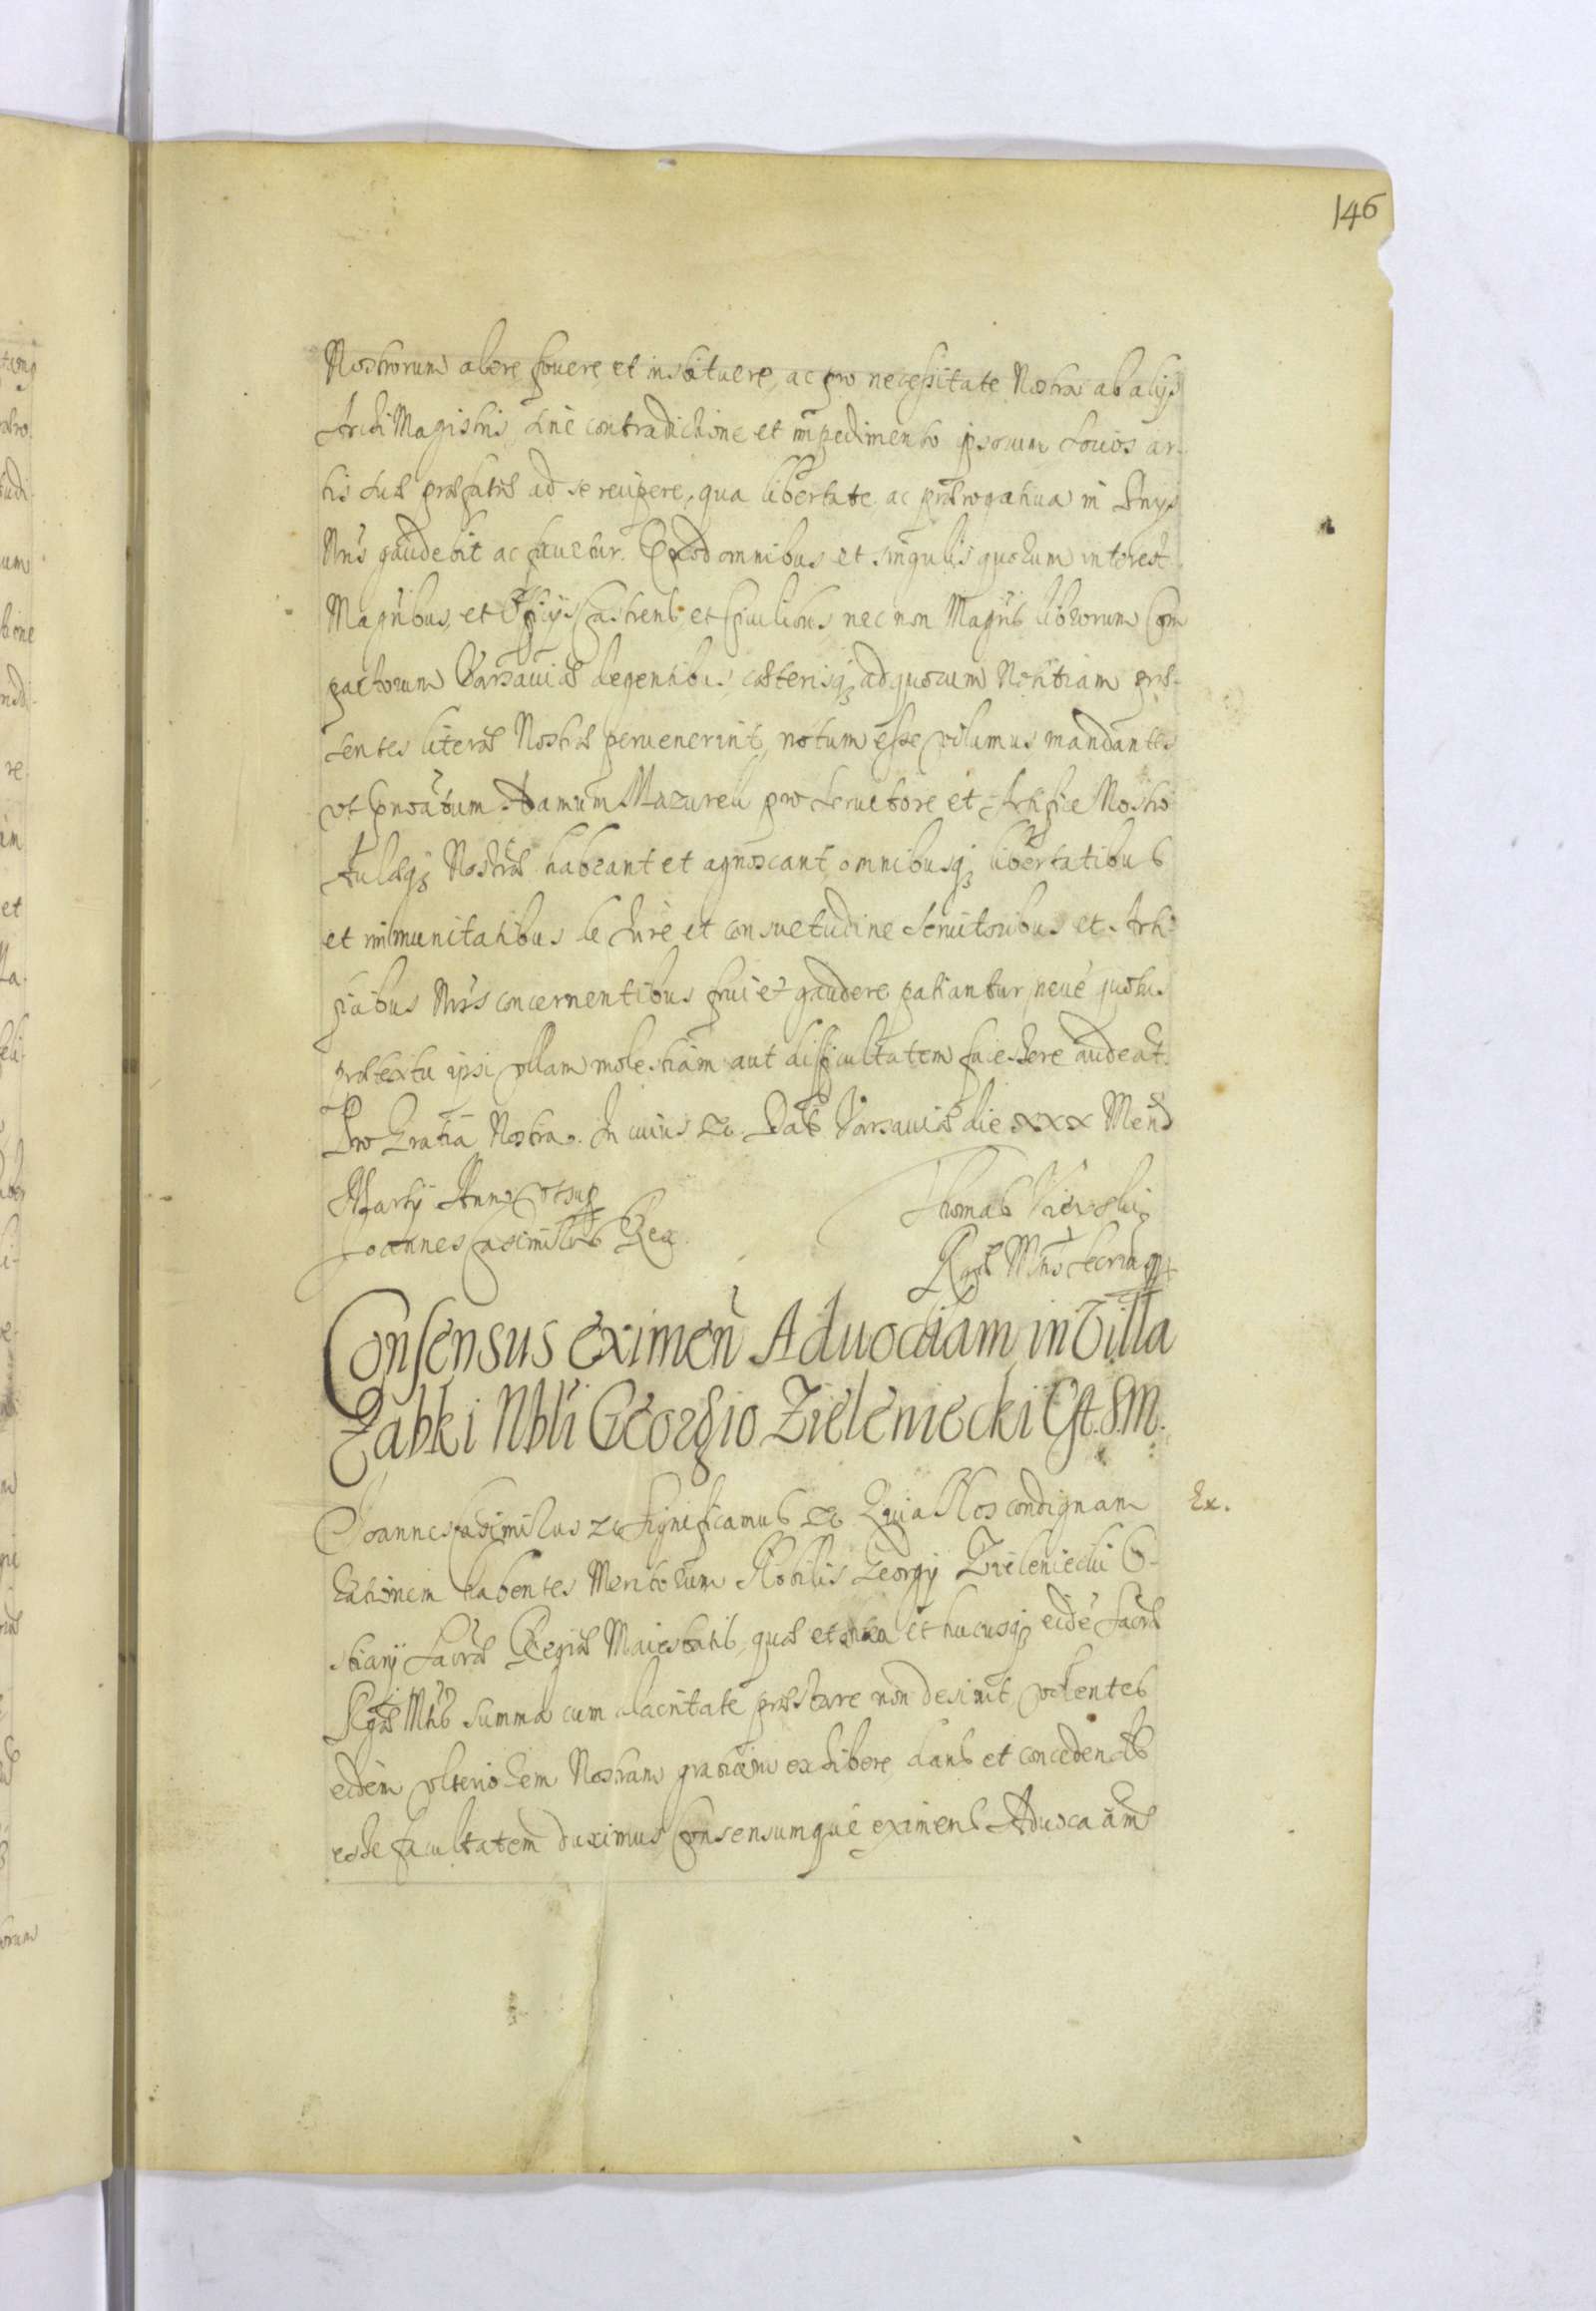 146
Nostrorum alere fovere, et instituere, ac pro necessitate Nostra ab alijs
Archi Magistris, sine contradictione et impedimento ipsorum socios ar-
tis suæ præfatæ ad se recipere, qua libertate ac prærogativa in
Nris gaudebit ac fruetur. Quod omnibus et singulis quorum interest
Magribus, et Officijs Castrens, et Civilibus, nec non Magris librorum Com
pactorum Varsaviæ degentibus, cæterisq; ad quorum Notitiam præ-
sentes literæ Nostræ pervenerint, notum esse volumus, mandantes
vt Adamum Mazurek pro Servitore et Artifice Nostro
Aulæq; Nostræ habeant et agnoscant, omnibusq; libertatibus
et immunitatibus de Jure et consuetudine Servitoribus et Arti
ficibus Nris concernentibus frui et gaudere patiantur, neve quovis
prætextu ipsi vllam molestiam aut difficultatem facessere audeat.
Pro Gratia Nostra. In cuius &c. Dat Varsaviæ die XXX Mens
Martij Anno
Joannes Casimirus Rex.
Thomas
Rgiæ Mtis Secrius
Consensus eximen Advocatiam in Villa
Ząbki Nbli Georgio Zieleniecki
Joannes Casimirus &c Significamus &c Quia Nos condignam
Ex.
Rationem habentes Meritorum Nobilis Georgij Zieleniecki O-
stiarij Sacræ Regiæ Maiestatis, quæ et hucusq; eidē Sacræ
Rgiæ Mtis summa cum alacritate præstare non desinit, volentes
eidem vlteriorem Nostram gratiam exhibere, dand et concedend
esse facultatem duximus, Consensumque eximend